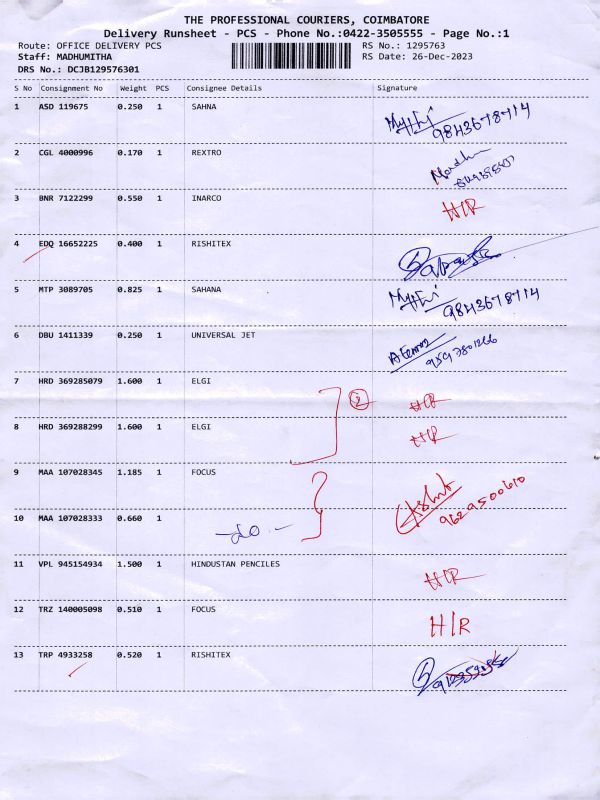 THE PROFESSIONAL COURIERS, COIMBATORE
Delivery Runsheet - PCS - Phone No.:0422-3505555 - Page No.:1
Route: OFFICE DELIVERY PCS RS No.: 1295763
Staff: MADHUMITHA RS Date: 26-Dec-2023
DRS No.: DCJB129576301
S No Consignment No Weight PCS Consignee Details Signature
1 ASD 119675 0.250 1 SAHNA
9843678714
2 CGL 4000996 0.170 1 REXTRO
3 BNR 7122299 0.550 1 INARCO H/R
4 EDQ 16652225 0.400 1 RISHITEX
5 MTP 3089705 0.825 1 SAHANA
9843678714
6 DBU 1411339 0.250 1 UNIVERSAL JET
7 HRD 369285079 1.600 1 ELGI H/R
2
8 HRD 369288299 1.600 1 ELGI H/R
9 MAA 107028345 1.185 1 FOCUS
9629500610
10 MAA 107028333 0.660 1 -do-
11 VPL 945154934 1.500 1 HINDUSTAN PENCILES H/R
12 TRZ 140005098 0.510 1 FOCUS H/R
13 TRP 4933258 0.520 1 RISHITEX